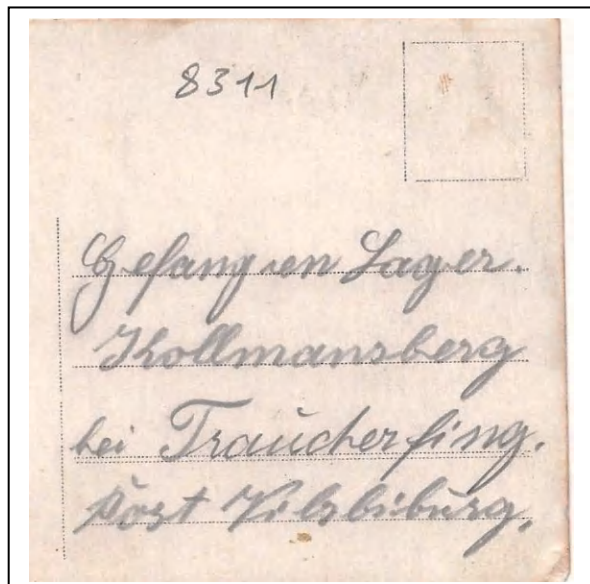 8311
Gefangnen Lager.
Kollmansberg
bei Traucherfing.
Post Vilsbiburg.